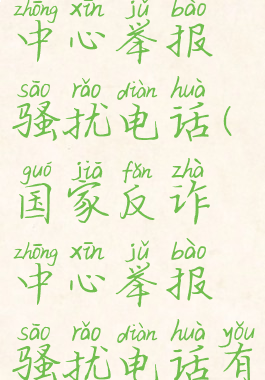 zhōng xīn jǔ bào
中心举报
sāo rǎo diàn huà
骚扰电话(
guó jiā fǎn zhà
国家反诈
zhōng xīn jǔ bào
中心举报
sāo rǎo diàn huà yǒu
骚扰电话有